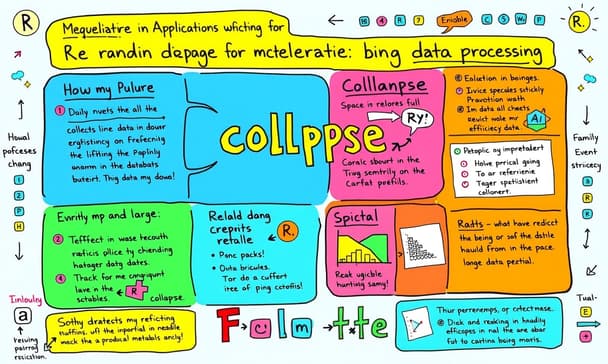 R
Mequeliative in Applications wficting for
Re randin dapage for mcteleratie: bing data processing
← 15 4 R 7 Eniable C S W P
R.
How my Pulure
1 Daily nvets the all the
collects line data in dour
erghistincy on Frefecnijg
the lifting the Paplinly
anarm in the databats
buteirt. Thig data my dows!
collppse
Colllanpse
Space in relores full
RY!
Coralc sbourt in the
Tivg semtrily on the
Carfat prefils.
Ealuetion in beinges.
Ivice specules stickly
Pravottion wath
Im data all chaets
reuict wale mr
efficiecy data
AI
Petoplic ay impretalert
Holve perical going
To ar referrienie
Tager spatistient
collonert.
Howal
pofcesses
chang
1
2
P
H
Family
Event
stricecy
8
R
R
Evnrity mp and large:
2 Tefffect in wase hecouth
raticis pllice ty chending
hatager daty dates.
4 Track for me cmrijrqunt
lave n the
sctables.
R
collapse.
Relald dang
crepiits
retalle
R.
• Panc packs!
• Outa bricules.
Tor do a cuffert
itee of ping cctoflis!
Spictal
Reat ugicble
hunting samy!
Radts – what have redict
the being or sof the datile
hauld from in the pace.
longe data pestial.
Iinlouley
a
Sothy dratects my reficting
nuffins. uft the inportial in neadile
wack the a prodocal metablis ancy!
F c l m t t e
Thur perremenps, or cetect nase.
Diek and reaking in haadily
efficopes in nal the are abar
fut to cartins being moris.
Tual-
E